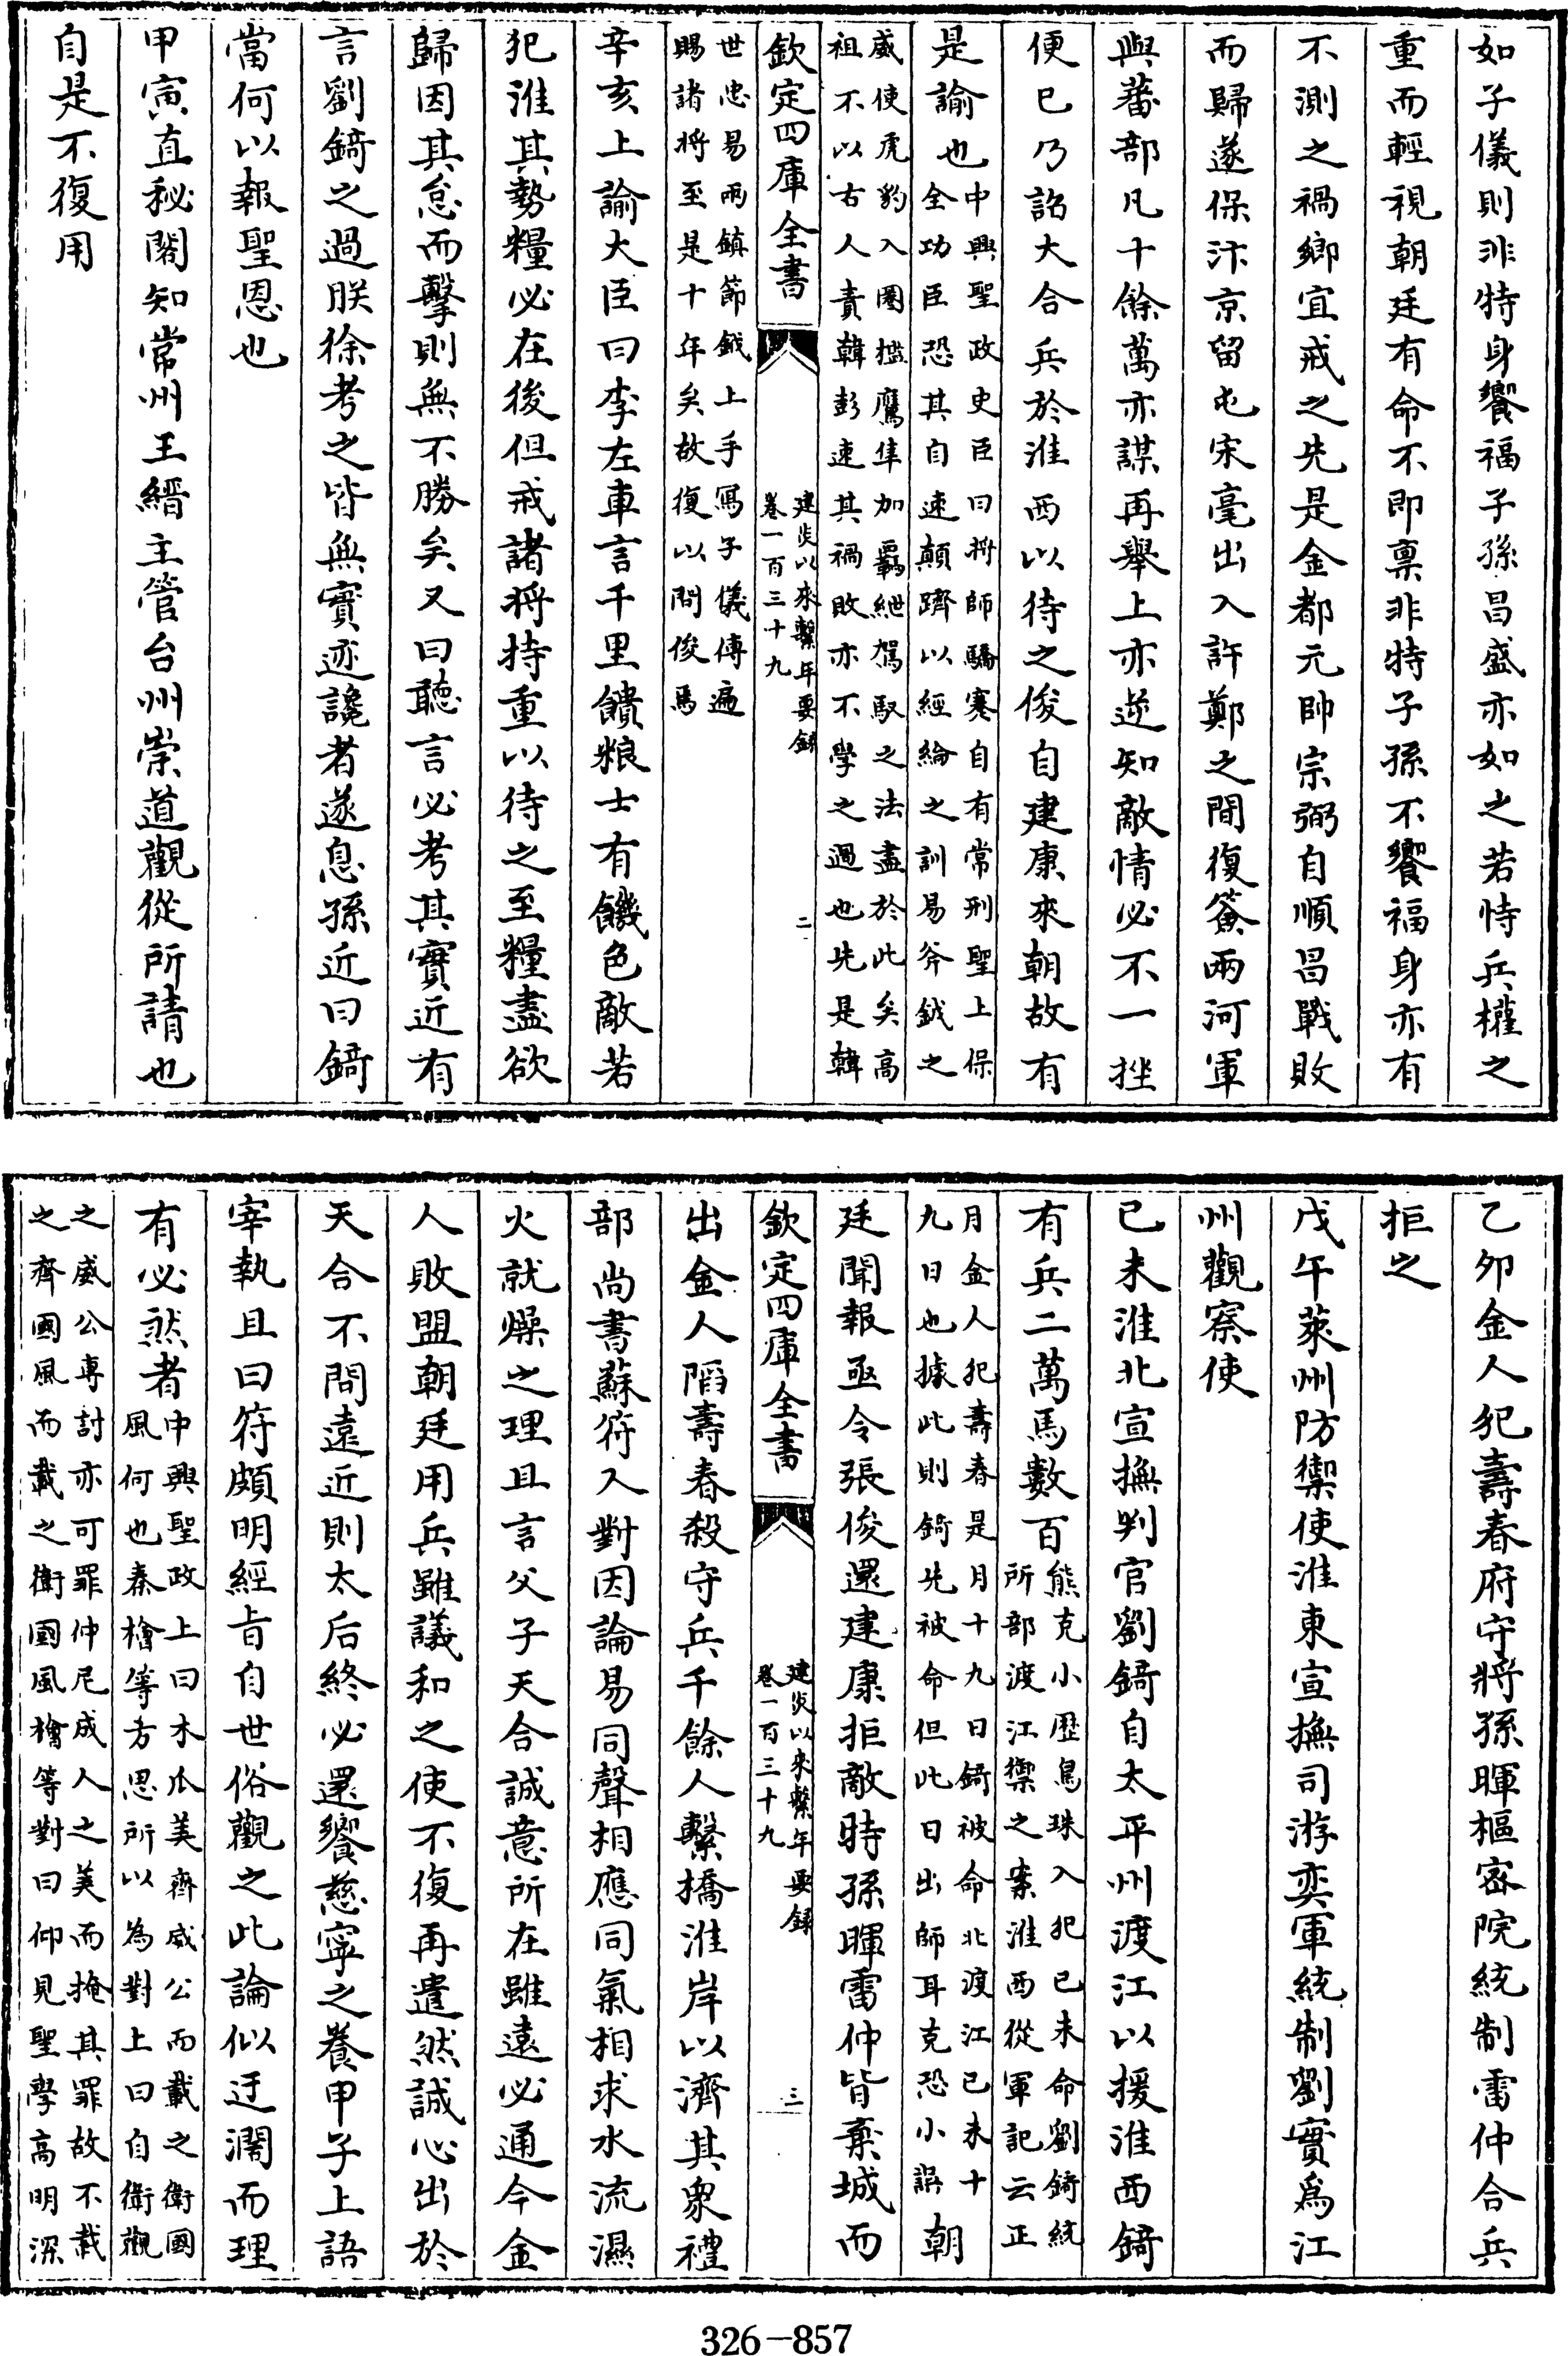 如子儀則非特身饗福子孫昌盛亦如之若恃兵權之
重而輕視朝廷有命不即禀非特子孫不饗福身亦有
不測之禍鄉宜戒之先是金都元帥宗弼自順昌戰敗
而歸遂保汴京留屯宋亳出入許鄭之間復簽兩河軍
與蕃部凡十餘萬亦謀再舉上亦逆知敵情必不一挫
便已乃詔大合兵於淮西以待之俊自建康來朝故有
是諭也
中興聖政史臣曰將師驕蹇自有常刑聖上保
全功臣恐其自速顛躋以經綸之訓易斧鉞之
威使虎豹入圈檻鷹隼加羈紲駕馭之法盡於此矣高
祖不以古人責韓彭速其禍敗亦不學之過也先是韓
欽定四庫全書
建炎以來繫年要錄
卷一百三十九
二
世忠易兩鎮節鉞上手寫子儀傳遍
賜諸將至是十年矣故復以問俊焉
辛亥上諭大臣曰李左車言千里饋粮士有饑色敵若
犯淮其勢糧必在後但戒諸將持重以待之至糧盡欲
歸因其怠而擊則無不勝矣又曰聽言必考其實近有
言劉錡之過朕徐考之皆無實迹讒者遂息孫近曰錡
當何以報聖恩也
甲寅直秘閣知常州王縉主管台州崇道觀從所請也
自是不復用
乙卯金人犯壽春府守將孫暉樞密院統制雷仲合兵
拒之
戊午萊州防禦使淮東宣撫司游奕軍統制劉寶爲江
州觀察使
已未淮北宣撫判官劉錡自太平州渡江以援淮西錡
有兵二萬馬數百
熊克小歴烏珠入犯已未命劉錡統
所部渡江禦之案淮西從軍記云正
月金人犯壽春是月十九日錡被命北渡江已未十
九日也據此則錡先被命但此日出師耳克恐小誤
朝
廷聞報亟令張俊還建康拒敵時孫暉雷仲皆棄城而
欽定四庫全書
建炎以來繫年要錄
卷一百三十九
三
出金人陷壽春殺守兵千餘人繫橋淮岸以濟其衆禮
部尚書蘇符入對因論易同聲相應同氣相求水流濕
火就燥之理且言父子天合誠意所在雖遠必通今金
人敗盟朝廷用兵雖議和之使不復再遣然誠心出於
天合不問遠近則太后終必還饗慈寧之養甲子上語
宰執且曰符頗明經旨自世俗觀之此論似迂濶而理
有必然者
中興聖政上曰木瓜美齊威公而載之衛國
風何也秦檜等方思所以為對上曰自衛觀
之威公専討亦可罪仲尼成人之美而掩其罪故不載
之齊國風而載之衛國風檜等對曰仰見聖學高明深
326-857